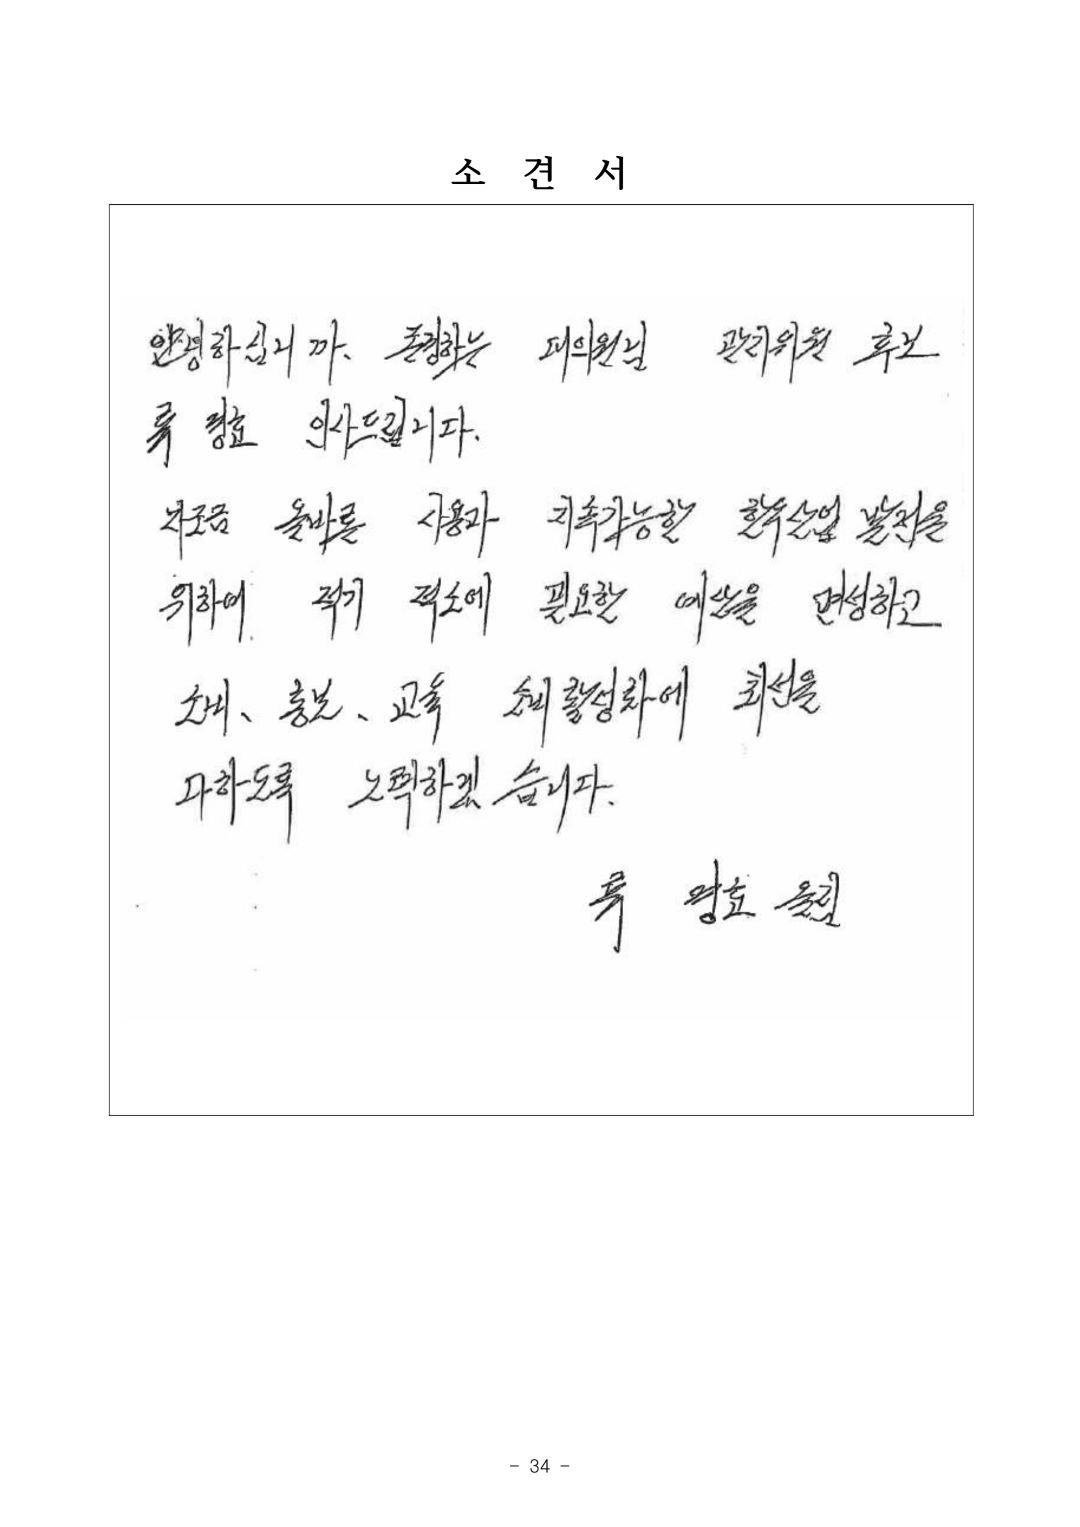 소 견 서
안녕하십니까. 존경하는 대의원님 관리위원 후보
류 명호 인사드립니다.
자조금 올바른 사용과 지속가능한 한우산업 발전을
위하여 적기 적소에 필요한 예산을 편성하고
소비, 홍보, 교육 소비 활성화에 최선을
다하도록 노력하겠습니다.
류 명호 올림
- 34 -